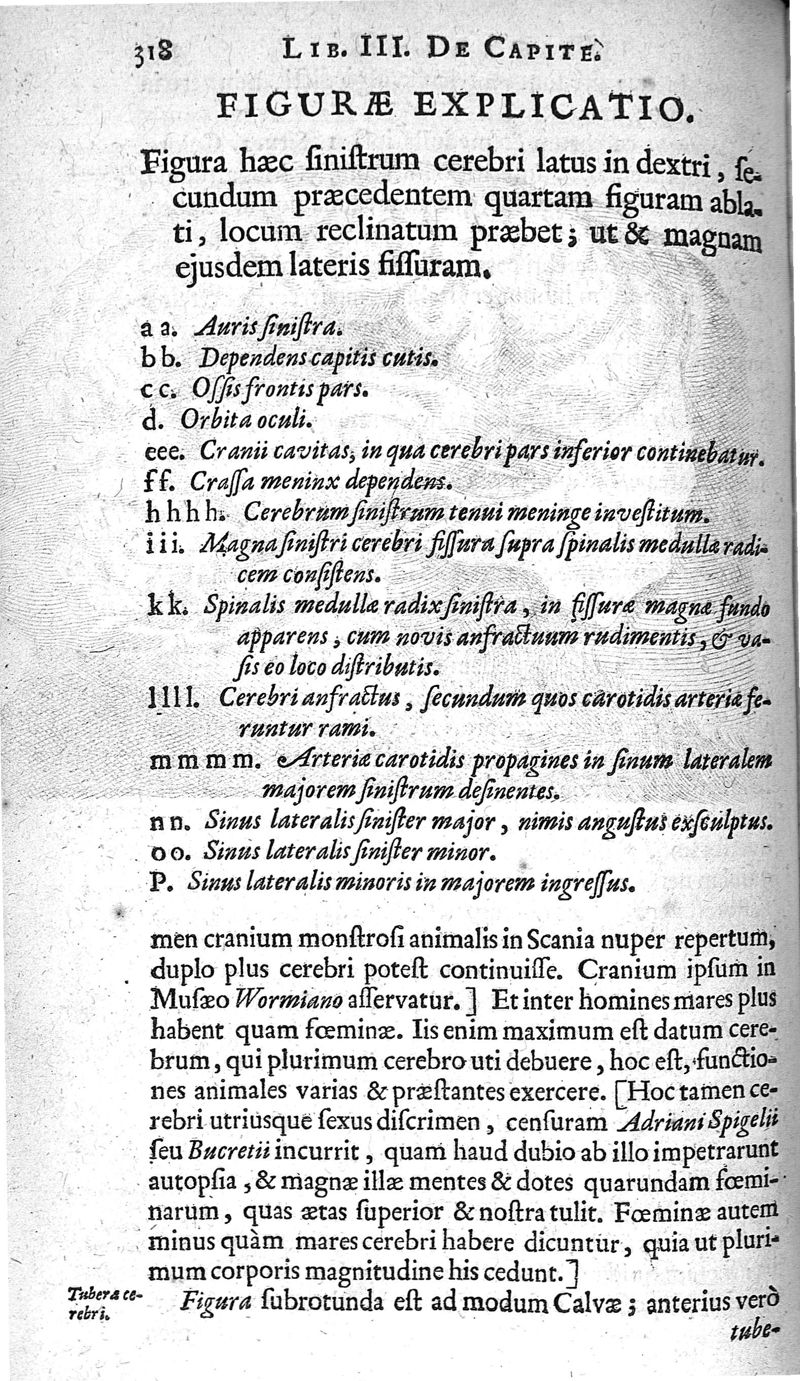 318 LIB. III. DE CAPITE.
FIGURÆ EXPLICATIO.
Figura hæc ſiniſtrum cerebri latus in dextri, ſe-
cundum præcedentem quartam figuram abla-
ti, locum reclinatum præbet; ut & magnam
ejusdem lateris fiſſuram.
a a. Auris ſiniſtra.
b b. Dependens capitis cutis.
c c. Oſſis frontis pars.
d. Orbita oculi.
eee. Cranii cavitas, in qua cerebri pars inferior continebatur.
f f. Craſſa meninx dependens.
h h h h. Cerebrum ſiniſtrum tenui meninge inveſtitum.
i i i. Magna ſiniſtri cerebri fiſſura ſupra ſpinalis medullæ radi-
cem conſiſtens.
k k. Spinalis medullæ radix ſiniſtra, in fiſſuræ magnæ fundo
apparens, cum novis anfractuum rudimentis, & va-
ſis eo loco diſtributis.
l l l l. Cerebri anfractus, ſecundum quos carotidis arteriæ fe-
runtur rami.
m m m m. Arteriæ carotidis propagines in ſinum lateralem
majorem ſiniſtrum deſinentes.
n n. Sinus lateralis ſiniſter major, nimis anguſtus exſculptus.
o o. Sinus lateralis ſiniſter minor.
P. Sinus lateralis minoris in majorem ingreſſus.
men cranium monſtroſi animalis in Scania nuper repertum,
duplo plus cerebri poteſt continuiſſe. Cranium ipſum in
Muſæo Wormiano aſſervatur.] Et inter homines mares plus
habent quam fœminæ. Iis enim maximum eſt datum cere-
brum, qui plurimum cerebro uti debuere, hoc eſt, functio-
nes animales varias & præſtantes exercere. [Hoc tamen ce-
rebri utriusque ſexus diſcrimen, cenſuram Adriani Spigelii
ſeu Bucretii incurrit, quam haud dubio ab illo impetrarunt
autopſia, & magnæ illæ mentes & dotes quarundam fœmi-
narum, quas ætas ſuperior & noſtra tulit. Fœminæ autem
minus quàm mares cerebri habere dicuntur, quia ut pluri-
mum corporis magnitudine his cedunt.]
Tubera ce-
rebri.
Figura ſubrotunda eſt ad modum Calvæ; anterius verò
tube-